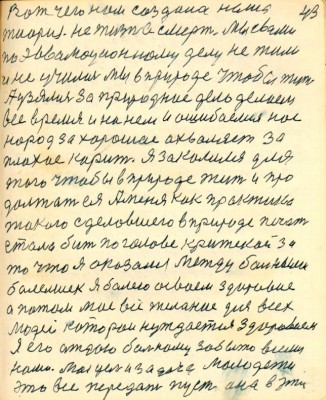 Вот чего нам создана наша 43
теория. не жизнь а смерть. Мы с вами
по Эволюционному делу не жили
и не учились Мы в природе чтобы жит
А узялис за природное дело делаем
все время и на нем и ошибаемся нас
народ за хорошее ахваляет За
плахое карит. Я закалился для
того чтобы в природе жит и про
должатся А меня как практика
такого сделовшего в природе печат
стала бит по голове критекой За
то что Я оказался между бальными
Я балею оввоем здоровие
а потом мое всё желание для всех
людей которои нуждается Здоровием
Я его атдаю балному забыто всеми
нами. Моя цель и задача молодёжи
это все передат пуст она в эти